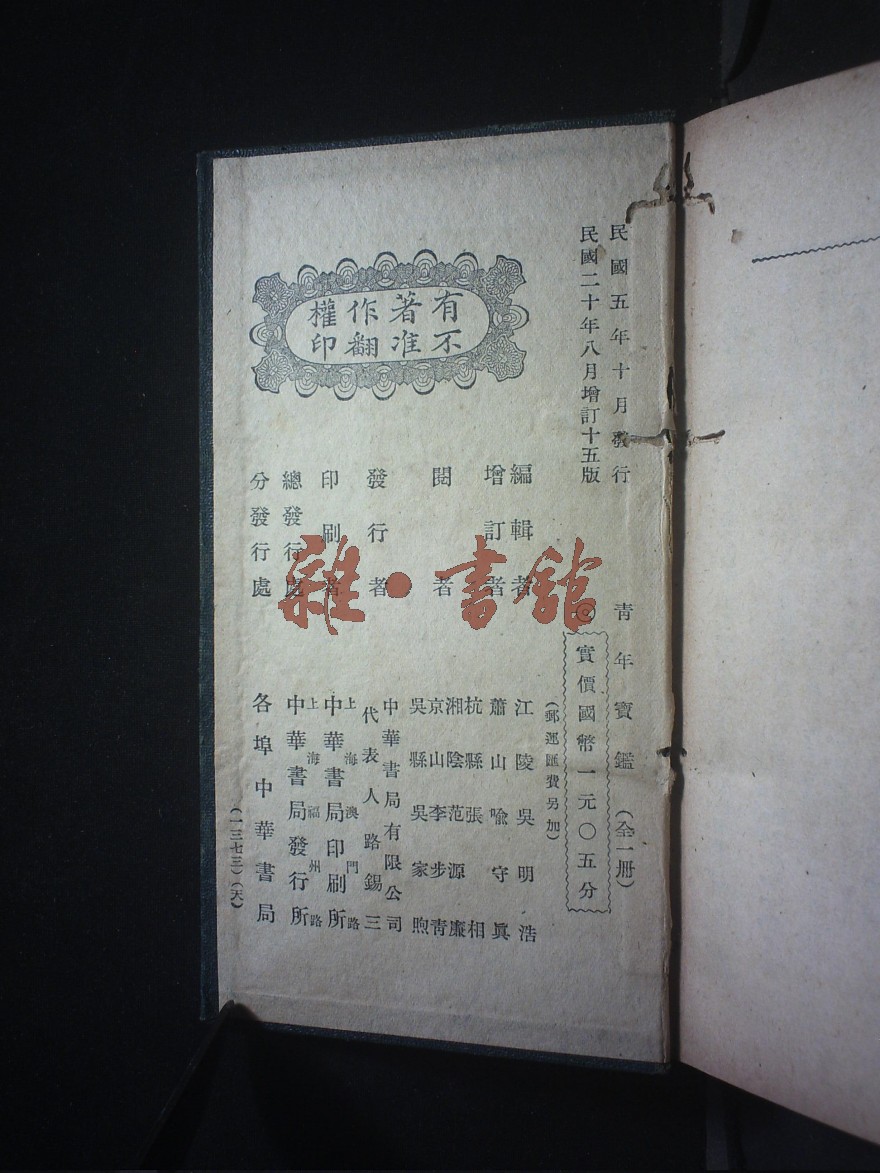 民國五年十月發行
民國二十年八月增訂十五版
青年寶鑑（全一册）
實價國幣一元〇五分
（郵運匯費另加）
有著作權
不准翻印
編輯者 江陵吳明浩
增訂者 蕭山喩守眞
閱者 杭縣張相
湘陰范源廉
京山李步青
吳縣吳家煦
發行者 中華書局有限公司
代表人路錫三
印刷者 上海澳門路
中華書局印刷所
總發行處 上海福州路
中華書局發行所
分發行處 各埠中華書局
（一三七三）（天）
雜·書館